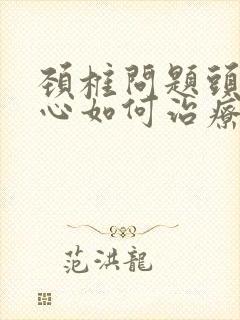 頚椎問題頭
心如何治療
范洪龍